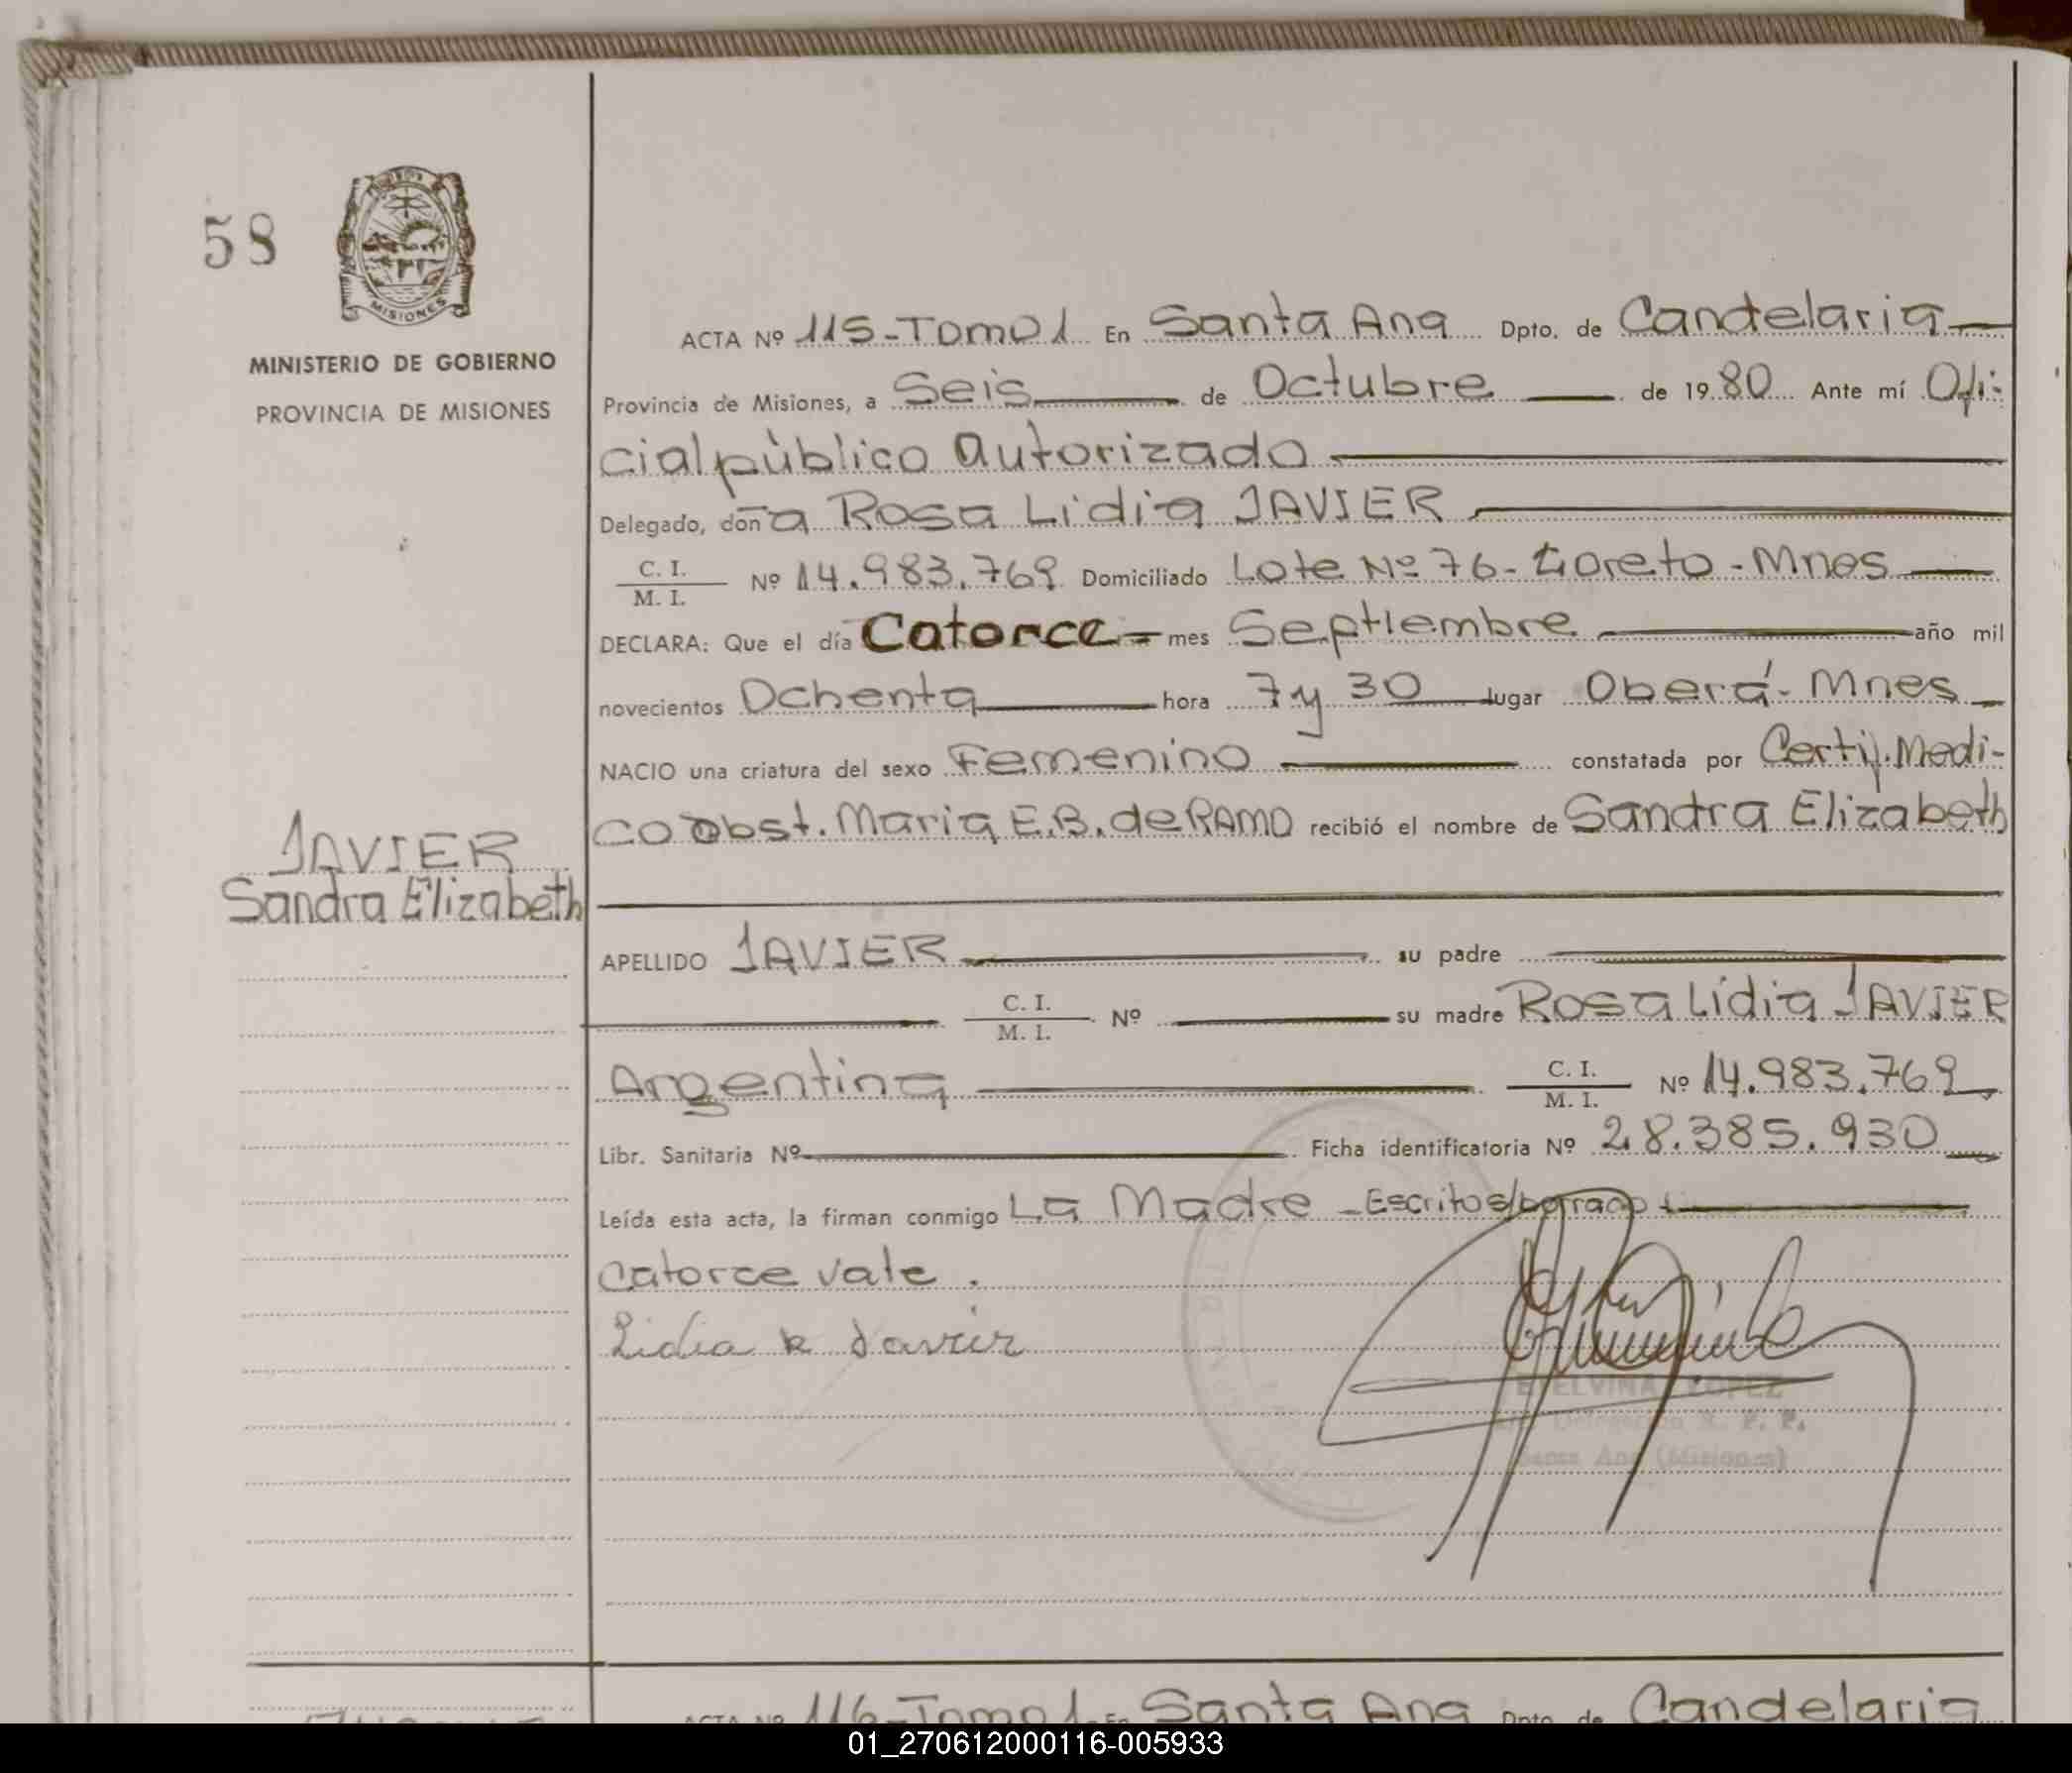 58
MISIONES
MINISTERIO DE GOBIERNO
PROVINCIA DE MISIONES
JAVIER
Sandra Elizabeth
ACTA Nº 115-Tomo 1 En Santa Ana Dpto. de Candelaria
Provincia de Misiones, a Seis de Octubre de 1980 Ante mí Ofi-
cial público autorizado
Delegado, don a Rosa Lidia JAVIER
C. I.
M. I. Nº 14.983.769 Domiciliado Lote Nº 76- Loreto - Mnes
DECLARA: Que el día Catorce mes Septiembre año mil
novecientos Ochenta hora 7 y 30 lugar Oberá- Mnes
NACIO una criatura del sexo Femenino constatada por Certif. Medi-
co Obst. Maria E.B. de RAMO recibió el nombre de Sandra Elizabeth
APELLIDO JAVIER su padre
C. I.
M. I. Nº su madre Rosa Lidia JAVIER
Argentina C. I.
M. I. Nº 14.983.769
Libr. Sanitaria Nº Ficha identificatoria Nº 28.385.930
Leída esta acta, la firman conmigo La Madre - Escrito s/borrado:
Catorce vale.
Lidia R Javier
LOPEZ
Santa Ana (Misiones)
ACTA Nº 116-Tomo 1 En Santa Ana Dpto. de Candelaria
01_270612000116-005933